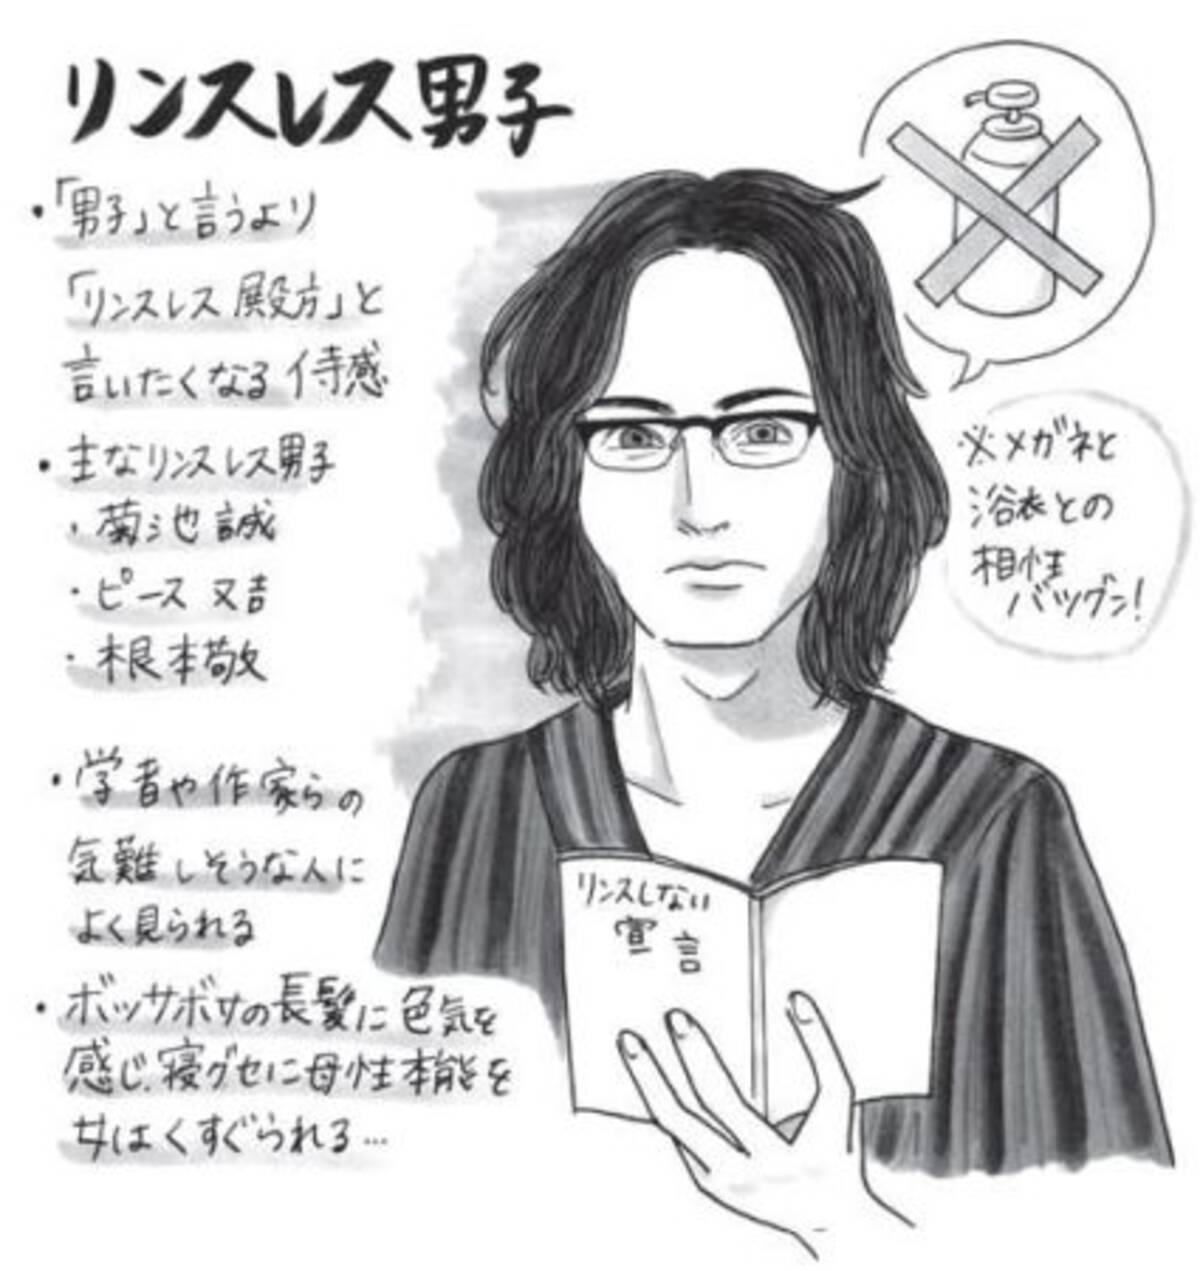 リンスレス男子
・「男子」と言うより
「リンスレス殿方」と
言いたくなる侍感
・主なリンスレス男子
・菊池誠
・ピース 又吉
・根本敬
・学者や作家らの
気難しそうな人に
よく見られる
・ボッサボサの長髪に色気を
感じ、寝グセに母性本能を
女はくすぐられる…
※メガネと
浴衣との
相性
バツグン!
リンスしない
宣言